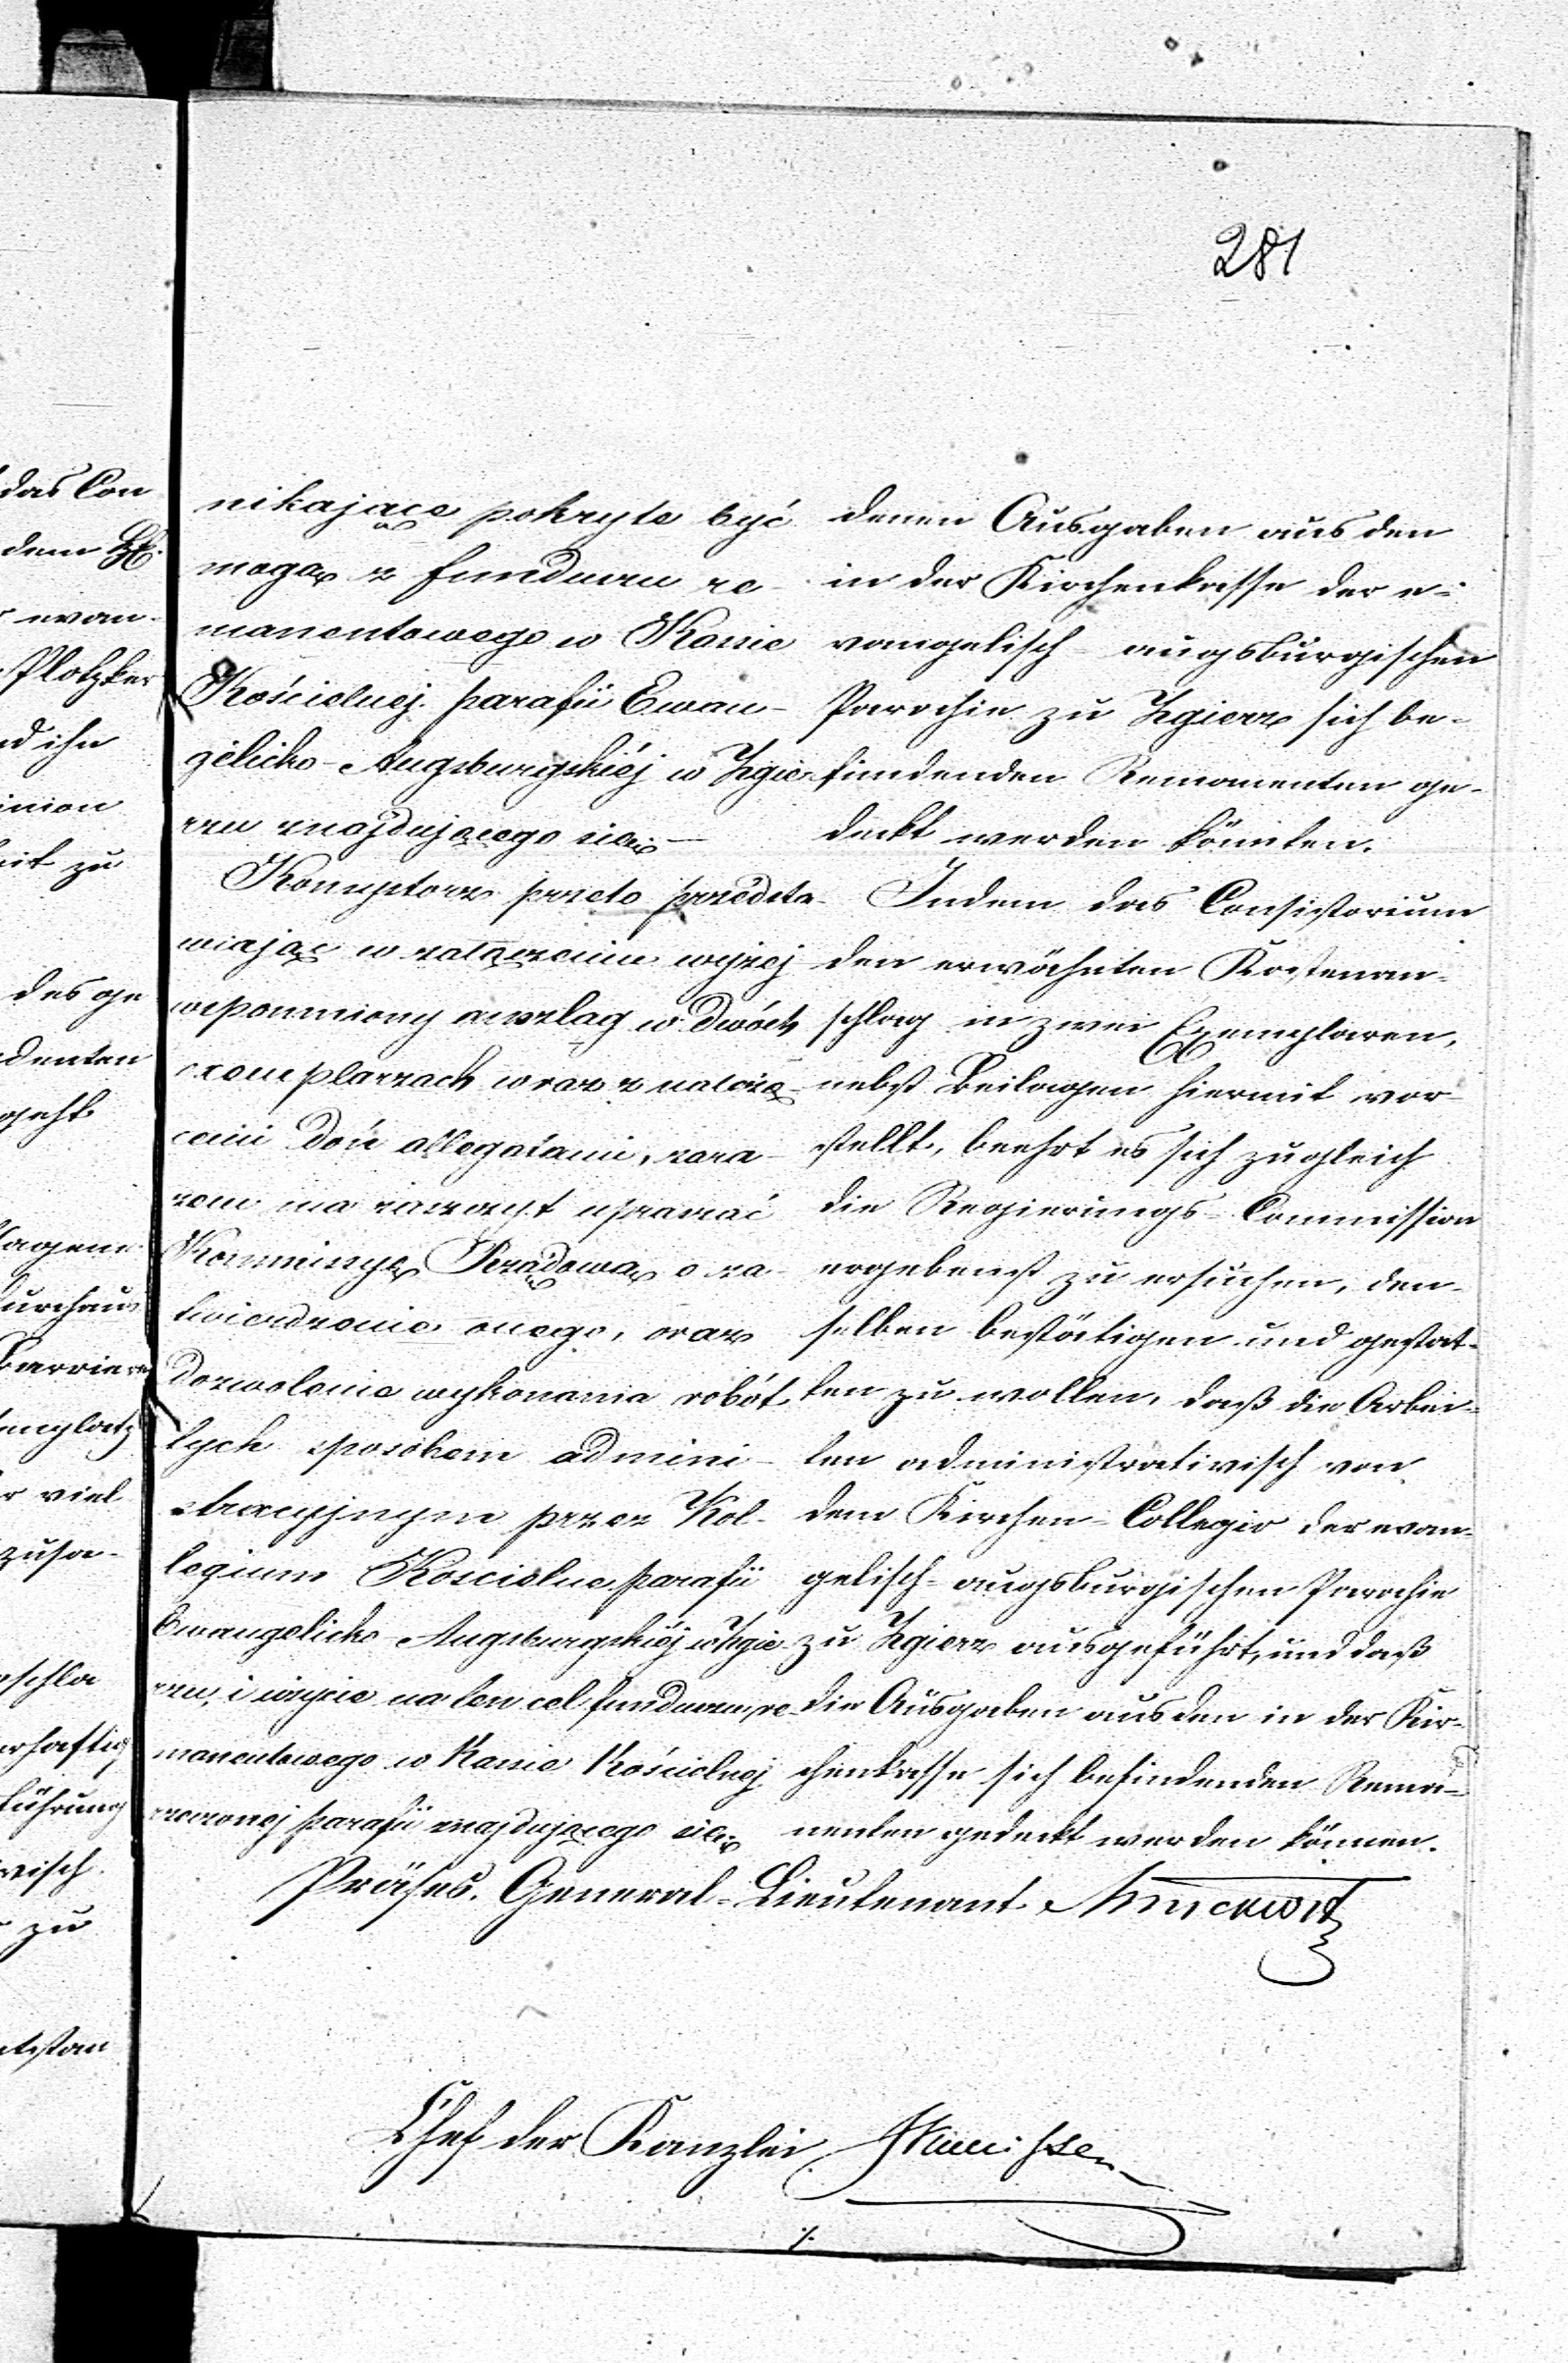 281
nikające pokryte być
mogą z funduszu re-
manentowego w Kassie
Kościelnej parafii Ewan-
gelicko-Augsburgskiéj w Zgie-
rzu znajdującego się.—
Konsystorz przeto przedsta-
wiając w załączeniu wyżej
wspomniony anszlag w dwóch
exemplarzach wraz z należą-
cemi doń allegatami, zara-
zem ma zaszczyt upraszać
Kommissyą Rządową o za-
twierdzenie onego, oraz
dozwolenie wykonania robót
tych sposobem admini-
stracyjnym przez Kol-
legium Kościelne parafii
Ewangelicko-Augsburgskiéj w Zgie-
rzu, i użycie na ten cel funduszu re-
manentowego w Kassie Kościelnej
rzeczonej parafii znajdującego się.
denen Ausgaben aus den
in der Kirchenkasse der e-
vangelisch-augsburgischen
Parochie zu Zgierz sich be-
findenden Remanenten ge-
deckt werden könnten.
Indem das Consistorium
den erwähnten Kostenan-
schlag in zwei Exemplaren,
nebst Beilagen hiermit vor-
stellt, beehrt es sich zugleich
die Regierungs-Commission
ergebenst zu ersuchen, den-
selben bestätigen und gestat-
ten zu wollen, daß die Arbei-
ten administrativisch von
dem Kirchen-Collegio der evan-
gelisch-augsburgischen Parochie
zu Zgierz ausgeführt, und daß
die Ausgaben aus den in der Kir-
chenkasse sich befindenden Rema-
nenten gedeckt werden können.
Präses. General-Lieutenant
Chef der Kanzlei
das Con
dem
evan-
Plotzker
nd ihn
zu
des ge
denten
geht
durchaus
Barriere
viel
zusa-
schla
führung
zu